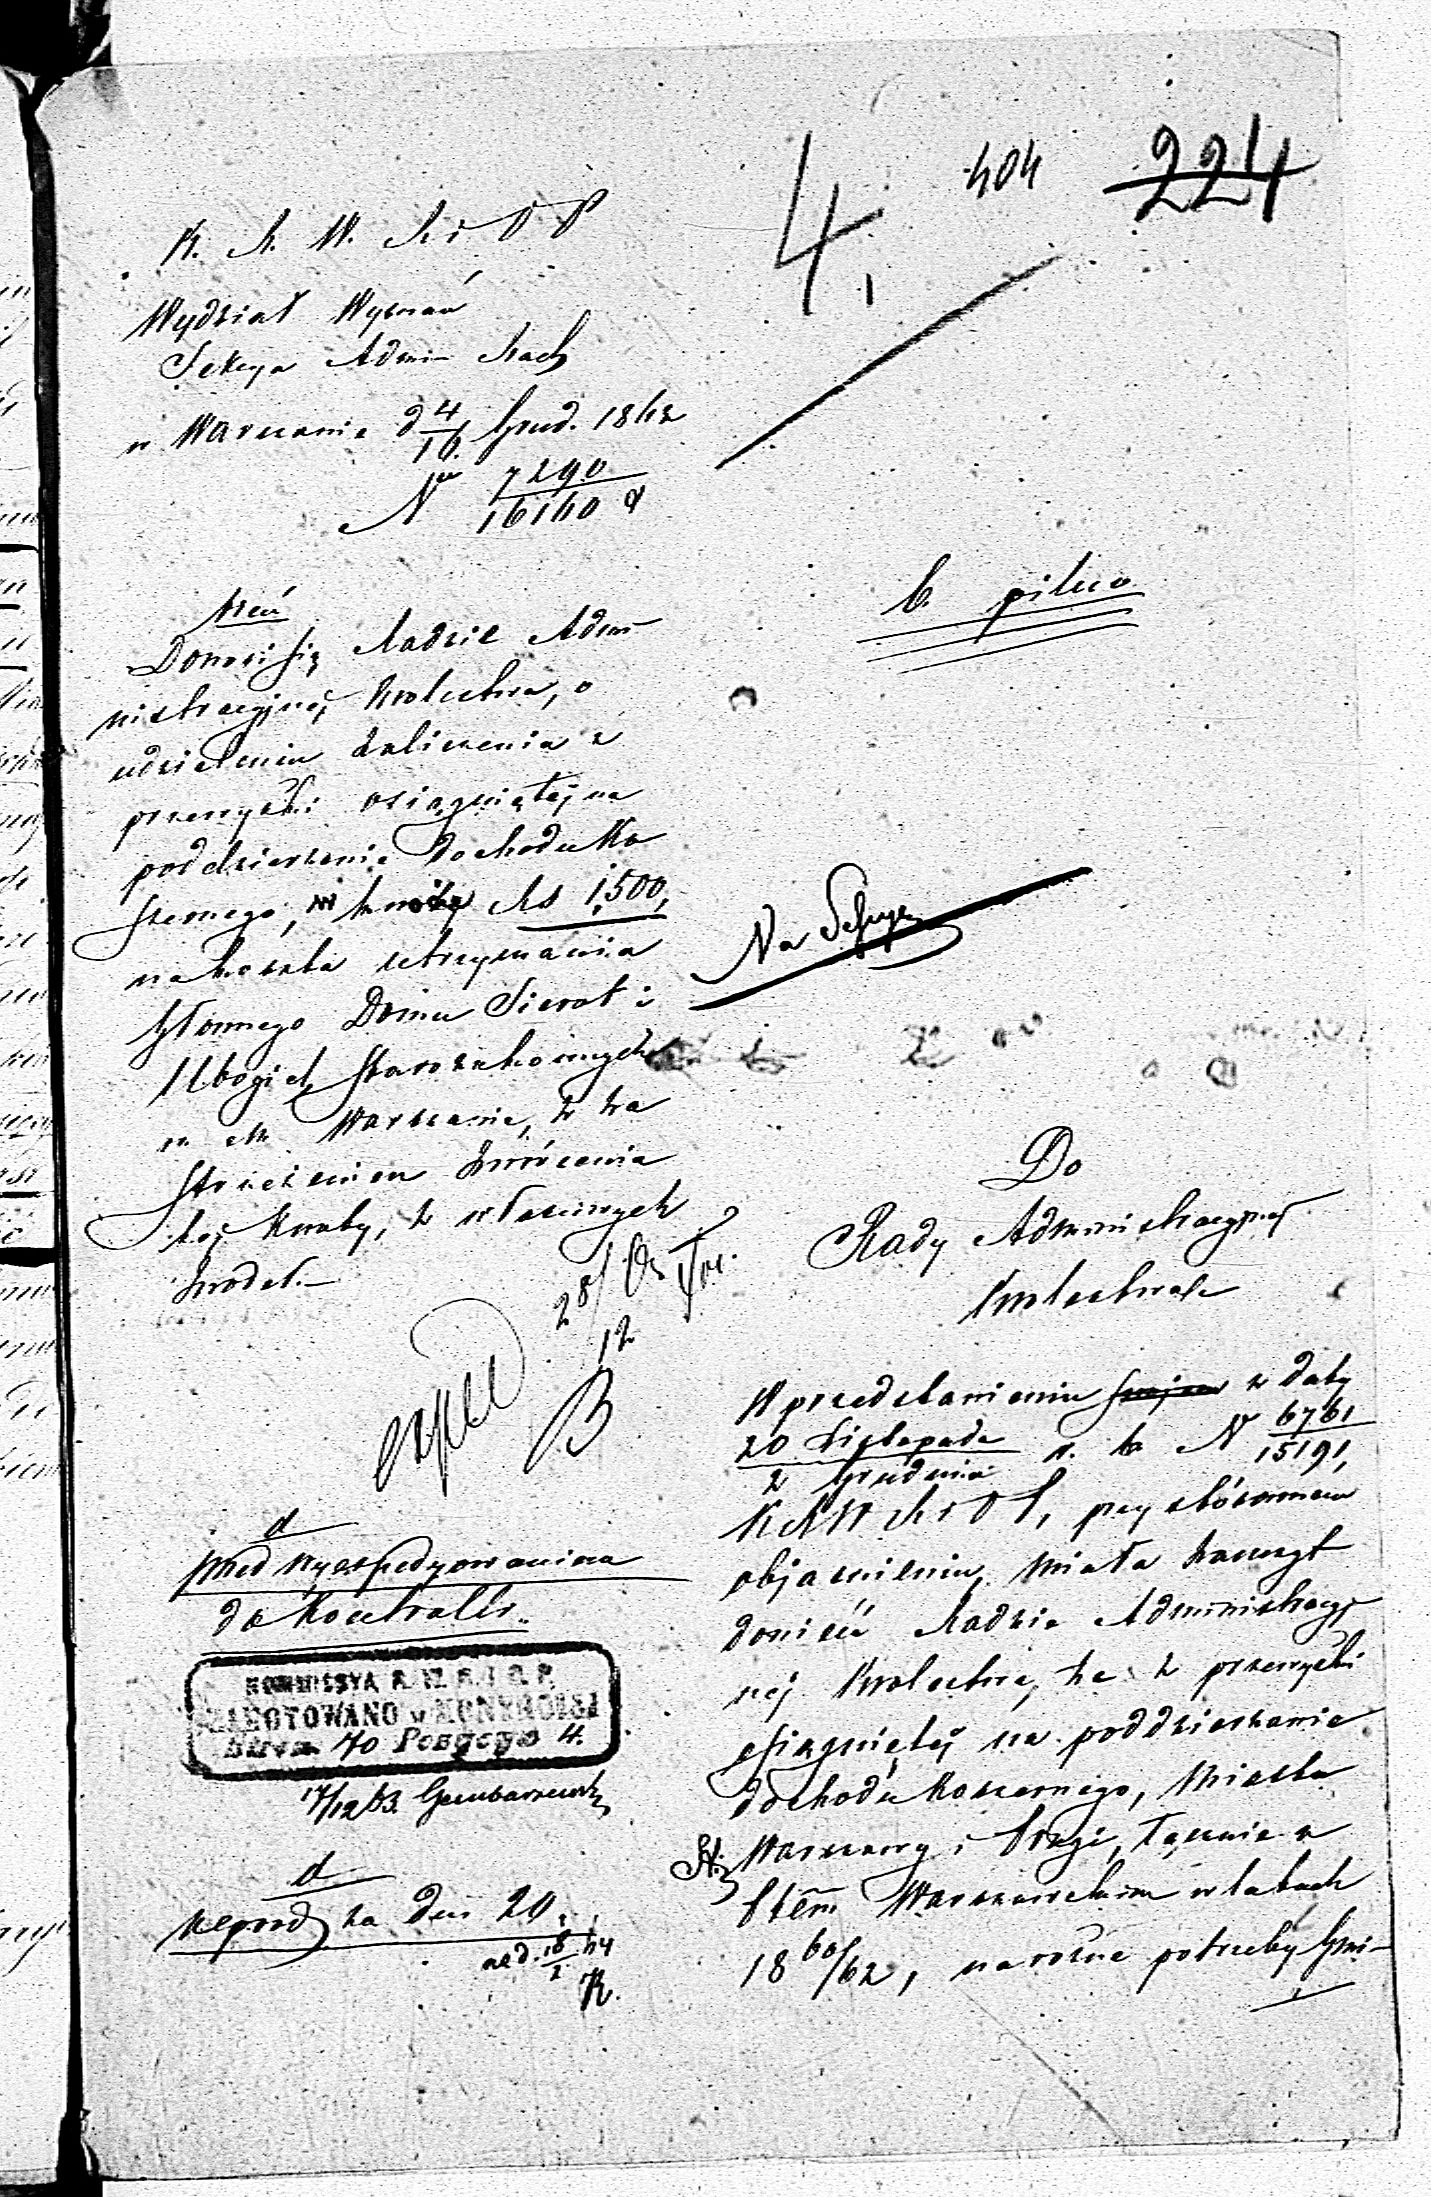 4.
404
224
K. R. W. R. i O P
Wydział Wyznań
Sekcya Admin Rach
w Warszawie d 4/16 Grud. 1863
N 7290/16140
b. pilno
treść
Donosi się Radzie Admi-
nistracyjnej Królestwa, o
udzieleniu zaliczenia z
przewyżki osiągniętej na
poddzierżawie dochodu Ko
szernego, w kwocie Rs 1,500,
na koszta utrzymania
Głównego Domu Sierot i
Ubogich Starozakonnych
w M. Warszawie, z za
strzeżeniem zwrócenia
tej kwoty, z właściwych
źrodeł.
Na Sessyę
28/12
B
Do
Rady Administracyjnej
Królestwa
W przedstawieniu z daty
20 Listopada / 2 Grudnia r. b. N 6761/15191,
K R W R i O P, przy stósownem
objaśnieniu, miała zaszczyt
donieść Radzie Administracyj
nej Królestwa, że z przewyżki
osiągniętej na poddzierżawie
dochodu Koszernego, Miasta
St: Warszawy i Pragi, łącznie z
Ptem Warszawskim w latach
18 60/62, na rożne potrzeby Gmi-
przed wyexpedyowaniem
do Kontrolli.
KOMMISSYA R. W. R. i O. P.
ZANOTOWANO w KONTROLLI
Stron. 70 Pozycya 4.
17/12 63.
za dni 20
R.